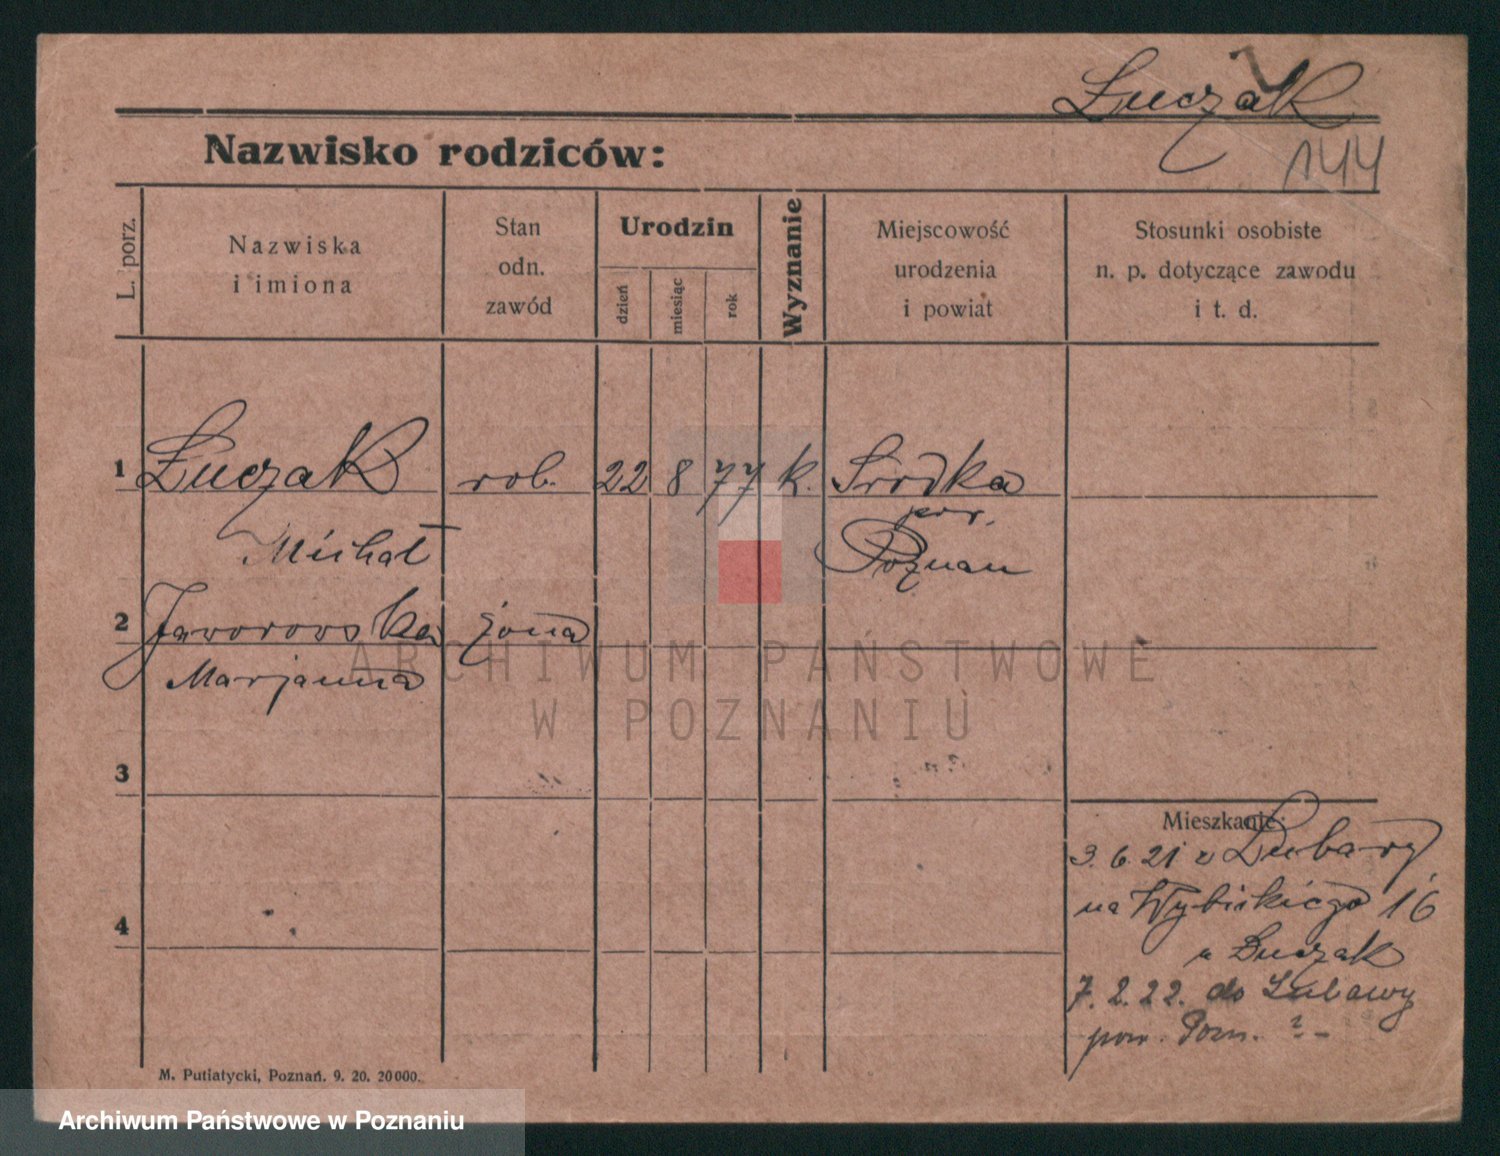 Łuczak
144
Nazwisko rodziców:
L. porz.
Nazwiska
i imiona
Stan
odn.
zawód
Urodzin
dzień
miesiąc
rok
Wyznanie
Miejscowość
urodzenia
i powiat
Stosunki osobiste
n. p. dotyczące zawodu
i t. d.
1 Łuczak rob. 22 8 77 k. Środka
pow.
Michał Poznan
2 Jaworowska żona
Marjanna
ARCHIWUM PAŃSTWOWE
W POZNANIU
3
Mieszkanie:
3. 6. 21 z
na Wybickiego 16
u Łuczak
4
7. 2. 22. do Lubawy
pow. Pozn. ? -
M. Putiatycki, Poznań. 9. 20. 20000.
Archiwum Państwowe w Poznaniu